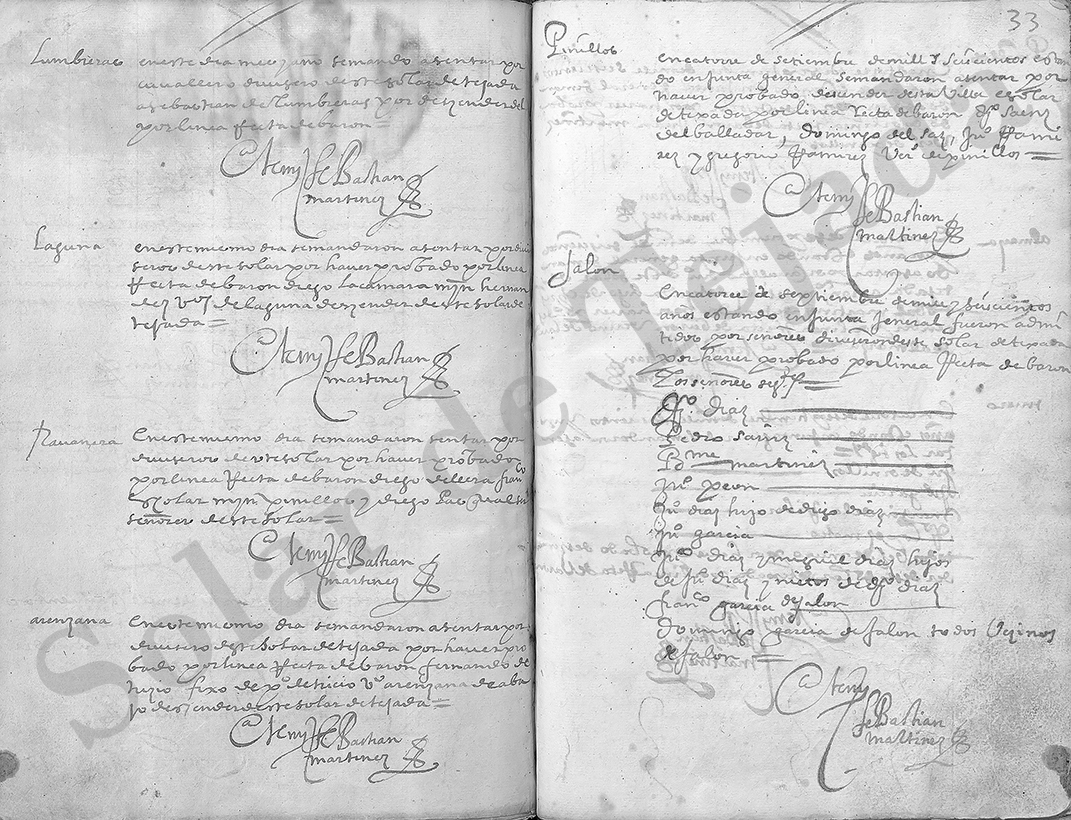 Lumbreras
en este dia mes y año semando asentar por
cavallero divisero deste solar de tejada
a sebastian de lumbreras por dezender del
por linea Recta de baron =
Ante my Se Bastian
martinez
Laguna
en este miesmo dia se mandaron asentar por divi
seros deste solar por haver probado por linea
Recta de baron diego la camara mjn hernan
dez Vºs de laguna dezender deste solar de
tejada =
Ante my Se Bastian
martinez
Ravanera
En este miesmo dia se mandaron sentar por
diviseros deste solar por haver probado
por linea Recta de baron diego de llera franco
Scolar mjn pinillos y diego
señores deste solar =
Ante my Se Bastian
martinez
arenzana
En este miesmo dia se mandaron asentar por
divisero deste Solar de tejada por haver pro
bado por linea Recta de baron fernando de
tricio fixo de pº de tricio vº arenzana de aba
jo dezender deste solar de tejada =
Ante my Se Bastian
martinez
33
Pinillos
En catorce de setiembre de mill y seiscientos estan
do en junta general se mandaron asentar por
haver probado desender desta Villa e solar
de texada por linea Recta de baron saenz
del balladar, domingo del saz, juº Rami
rez y gregorio Ramirez Vzºs de pinillos =
Ante my
Se Bastian
martinez
Jalon
En catorce de septiembre de mill y seiscientos
años estando en junta jeneral fueron admi
tidos por señores diviseros deste solar de texada
por haver probado por linea Recta de baron
Los señores =
diaz
Pedro saenz
Bme martinez
juº peon
juº diaz hijo de diego diaz
juº garcia
juº diaz y miguel diaz hijos
de juº diaz nietos de diaz
franco garcia de Jalon
domingo garcia de Jalon todos Vezinos
de Jalon =
Ante my
Se Bastian
martinez
Solar de Tejada